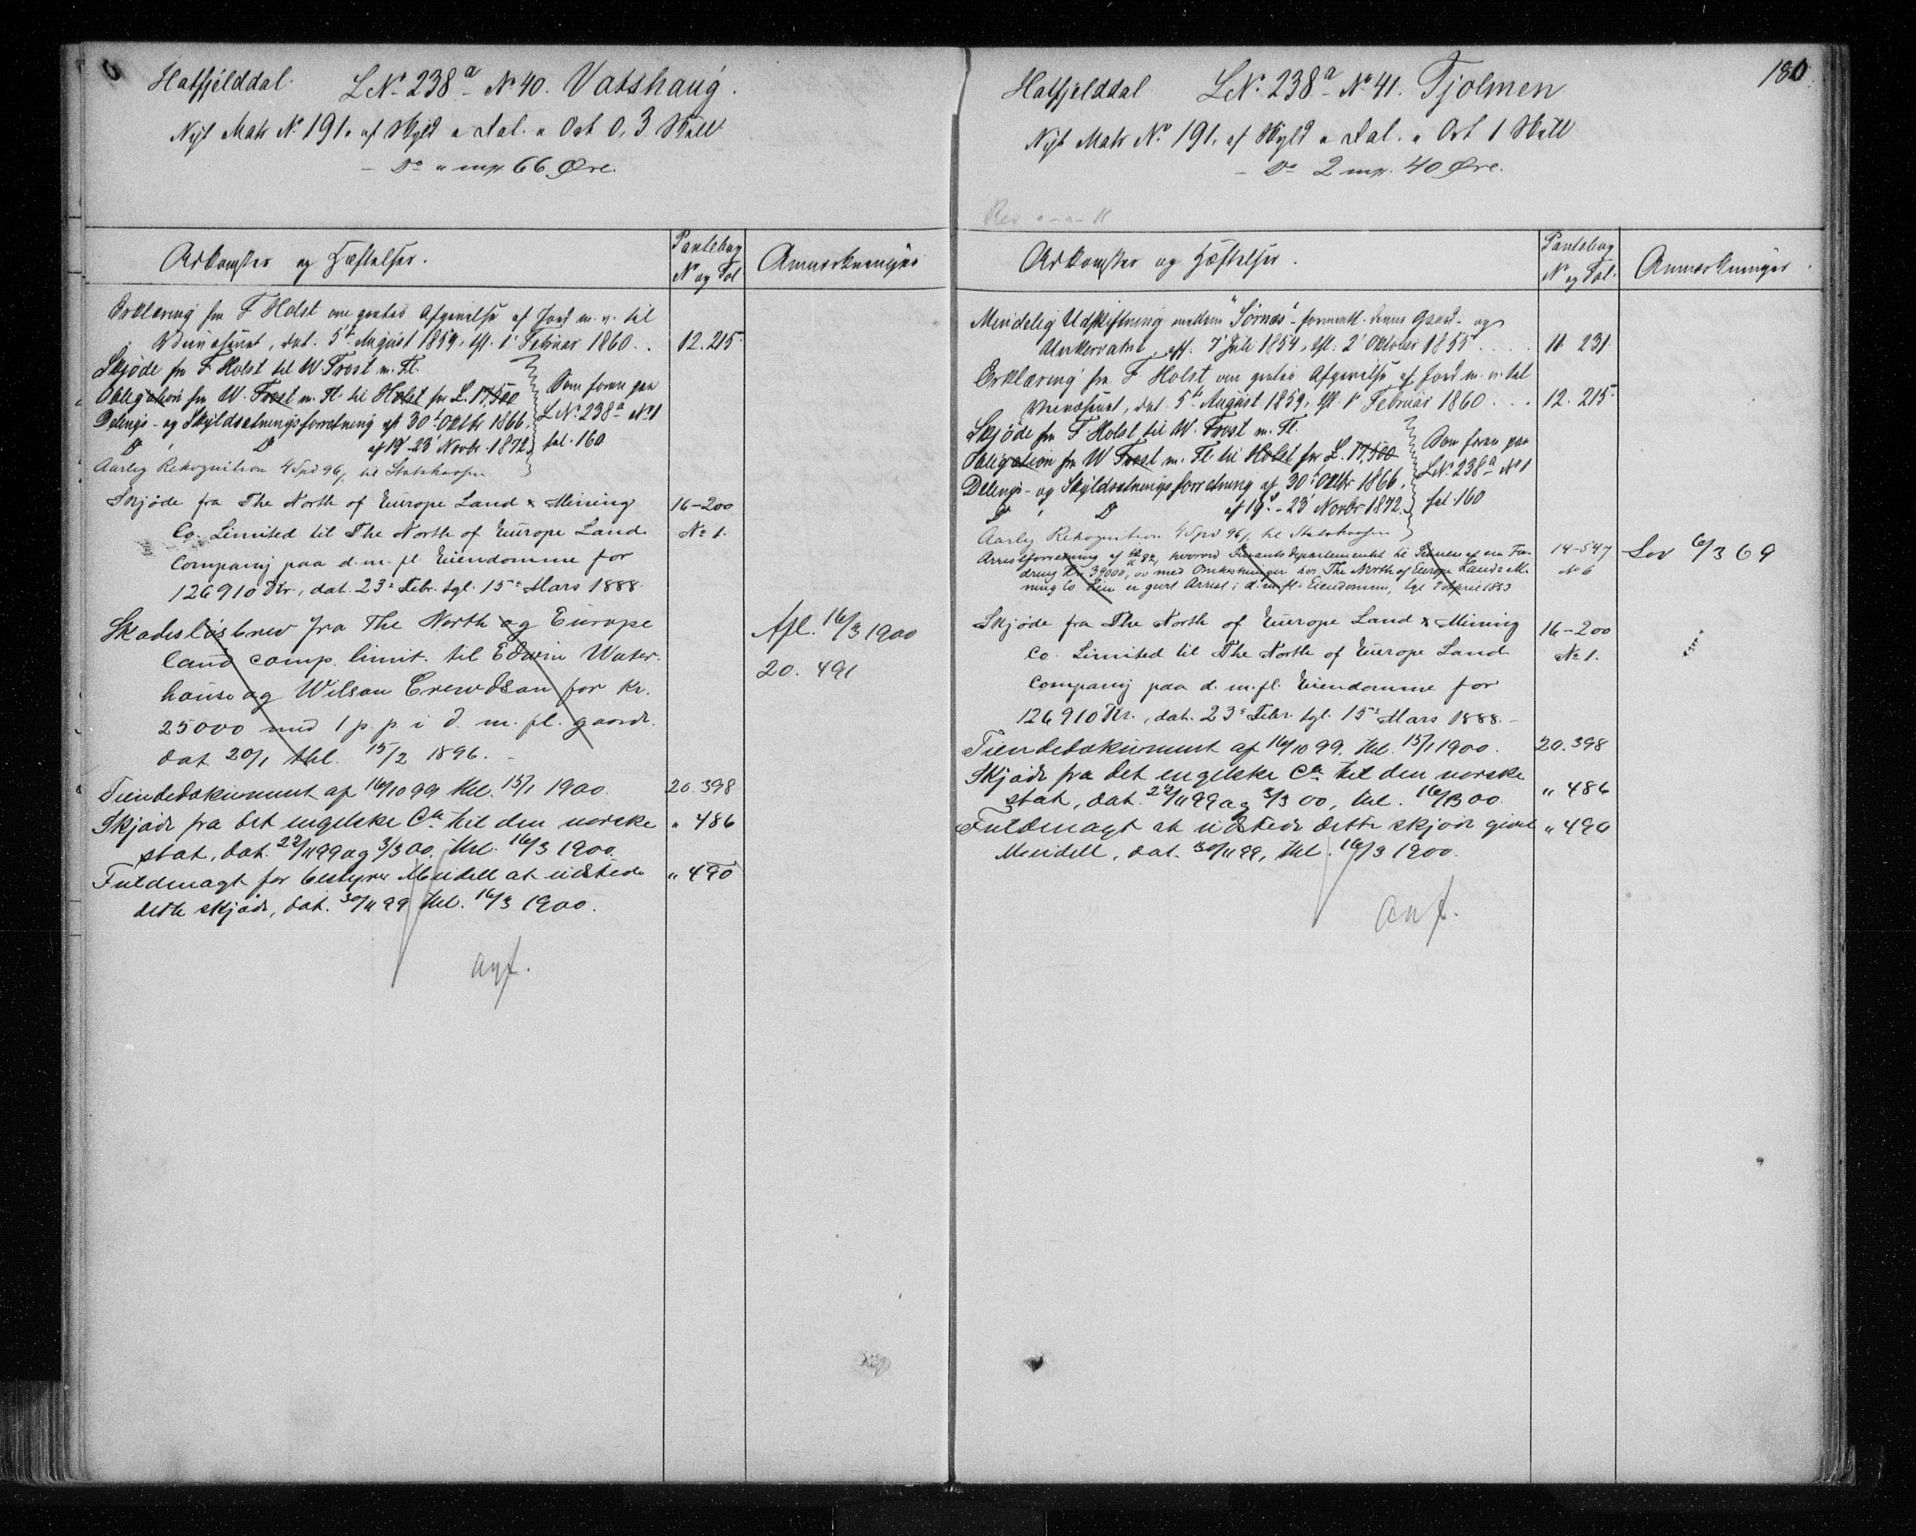 Hatfjelddal. LNo. 238a No 40. Vatshaug.
Nyt Matr No 191. af Skyld " Dal. " Ort 0,3 Skill
- Do " mrk 66 Øre.
Adkomster og Hæftelser.
Pantebog
No og Fol
Anmærkninger
Erklæring fra F Holst om gratis Afgivelse af Jord m. v. til
Veivæsenet, dat. 5te August 1859, tgl. 1ste Februar 1860. . 12. 215
Skjøde fra F Holst til W. Frost m. Fl.
Obligation fra W. Frost m. Fl. til Holst for L. 17,500
Som foran paa
Delings- og Skyldsætningsforretning af 30te Oktbr 1866.
LNo. 238a No 1
Do Do af 19-23 Novbr. 1872
fol. 160
Aarlig Rekognition 4 Spd 96 s, til Statskassen
Skjøde fra The North of Europe Land & Mining 16-200
Co. Limited til The North of Europe Land No 1.
Company paa d. m. fl. Eiendomme for
126910 Kr., dat. 23de Febr. tgl. 15de Mars 1888.
Skadesløsbrev fra The North og Europe Afl. 16/3 1900
land comp. limit. til Edwin Water- 20. 491
house og Wilson Crewdson for kr.
25000 med 1 p p i d. m. fl. gaarde.
dat 20/1 thl. 15/2 1896.
Tiendedokument af 16/10 99 thl. 15/1 1900. 20. 398
Skjøde fra det engelske Co. til den norske " 486
stat, dat. 22/11 99 og 3/3 00, thl. 16/3 1900.
Fuldmagt for bestyrer Mendell at udstede " 490
dette skjøde, dat. 30/11 99 thl. 16/3 1900.
Auf.
180
Hatfjelddal LNo. 238a No 41. Tjolmen
Nyt Matr No. 191. af Skyld " Dal. " Ort 1 Skill
- Do 2 mrk. 40 Øre.
Adkomster og Hæftelser.
Pantebog
No og Fol.
Anmærkninger.
Mindelig Udskiftning mellem "Sørnæs" . . . denne Gaard og
Unkervatnet, aff. 7 Juli 1854, tgl. 2 Oktober 1855 . . . 11 231
Erklæring fra F Holst om gratis Afgivelse af Jord m. v. til
Veivæsenet, dat. 5te August 1859, tgl. 1ste Februar 1860 . . . 12. 215
Skjøde fra F. Holst til W. Frost m. Fl.
Som foran paa
Obligation fra W Frost m. Fl. til Holst for L. 17,500
LNo. 238a No 1
Delings- og Skyldsætningsforretning af 30te Oktbr 1866.
fol. 160
Do Do af 19de-23de Novbr 1872.
Aarlig Rekognition 4 Spd 96 s, til Statskassen
Arrestforretning af 82, hvorved Finants Departementet til Sikkerhed af en For- 14-547 Lov 6/3 69
dring Kr. 39000, med Omkostninger hos The North of Europe Land & Mi- No 6
ning Co Lim er gjort Arrest i d. m. fl. Eiendomme, tgl 2 April 1883
Skjøde fra The North of Europe Land & Mining 16-200
Co. Limited til The North of Europe Land No 1.
Company paa d. m. fl. Eiendomme for
126910 Kr., dat. 23de Febr tgl. 15de Mars 1888.
Tiendedokument af 16/10 99. thl. 15/1 1900. 20. 398
Skjøde fra det engelske Co. til den norske " 486
stat, dat. 22/11 99 og 3/3 00, thl. 16/3 00.
Fuldmagt at udstede dette skjøde givet " 490
Mendell, dat. 30/11 99, thl. 16/3 1900.
Auf.